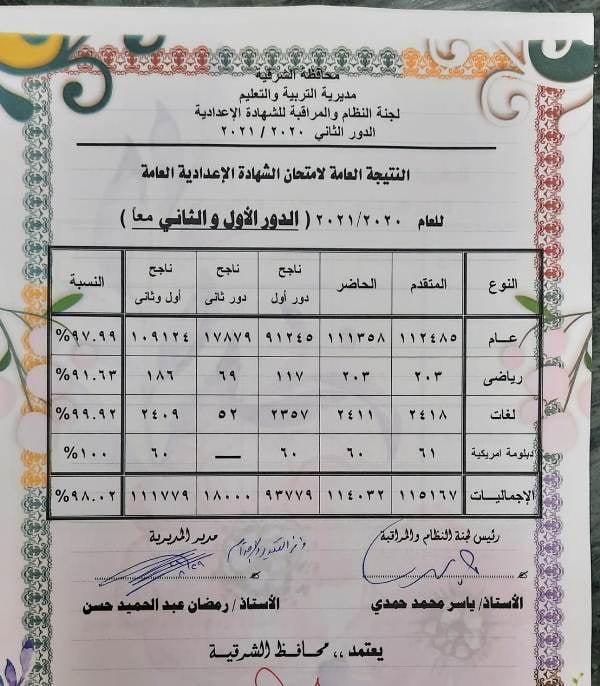 محافظة الشرقية
مديرية التربية والتعليم
لجنة النظام والمراقبة للشهادة الإعدادية
الدور الثاني ٢٠٢٠ / ٢٠٢١
النتيجة العامة لامتحان الشهادة الإعدادية العامة
للعام ٢٠٢١/٢٠٢٠ ( الدور الأول و الثاني معاً )
النوع المتقدم الحاضر ناجح دور أول ناجح دور ثانى ناجح أول وثانى النسبة
عـام ١١٢٤٨٥ ١١١٣٥٨ ٩١٢٤٥ ١٧٨٧٩ ١٠٩١٢٤ ٩٧.٩٩%
رياضى ٢٠٣ ٢٠٣ ١١٧ ٦٩ ١٨٦ ٩١.٦٣%
لغات ٢٤١٨ ٢٤١١ ٢٣٥٧ ٥٢ ٢٤٠٩ ٩٩.٩٢%
دبلومة امريكية ٦١ ٦٠ ٦٠ — ٦٠ ١٠٠%
الإجماليـات ١١٥١٦٧ ١١٤٠٣٢ ٩٣٧٧٩ ١٨٠٠٠ ١١١٧٧٩ ٩٨.٠٢%
رئيس لجنة النظام والمراقبة مدير المديرية
الأستاذ/ ياسر محمد حمدي الأستاذ/ رمضان عبد الحميد حسن
يعتمد ،، محافظ الشرقية